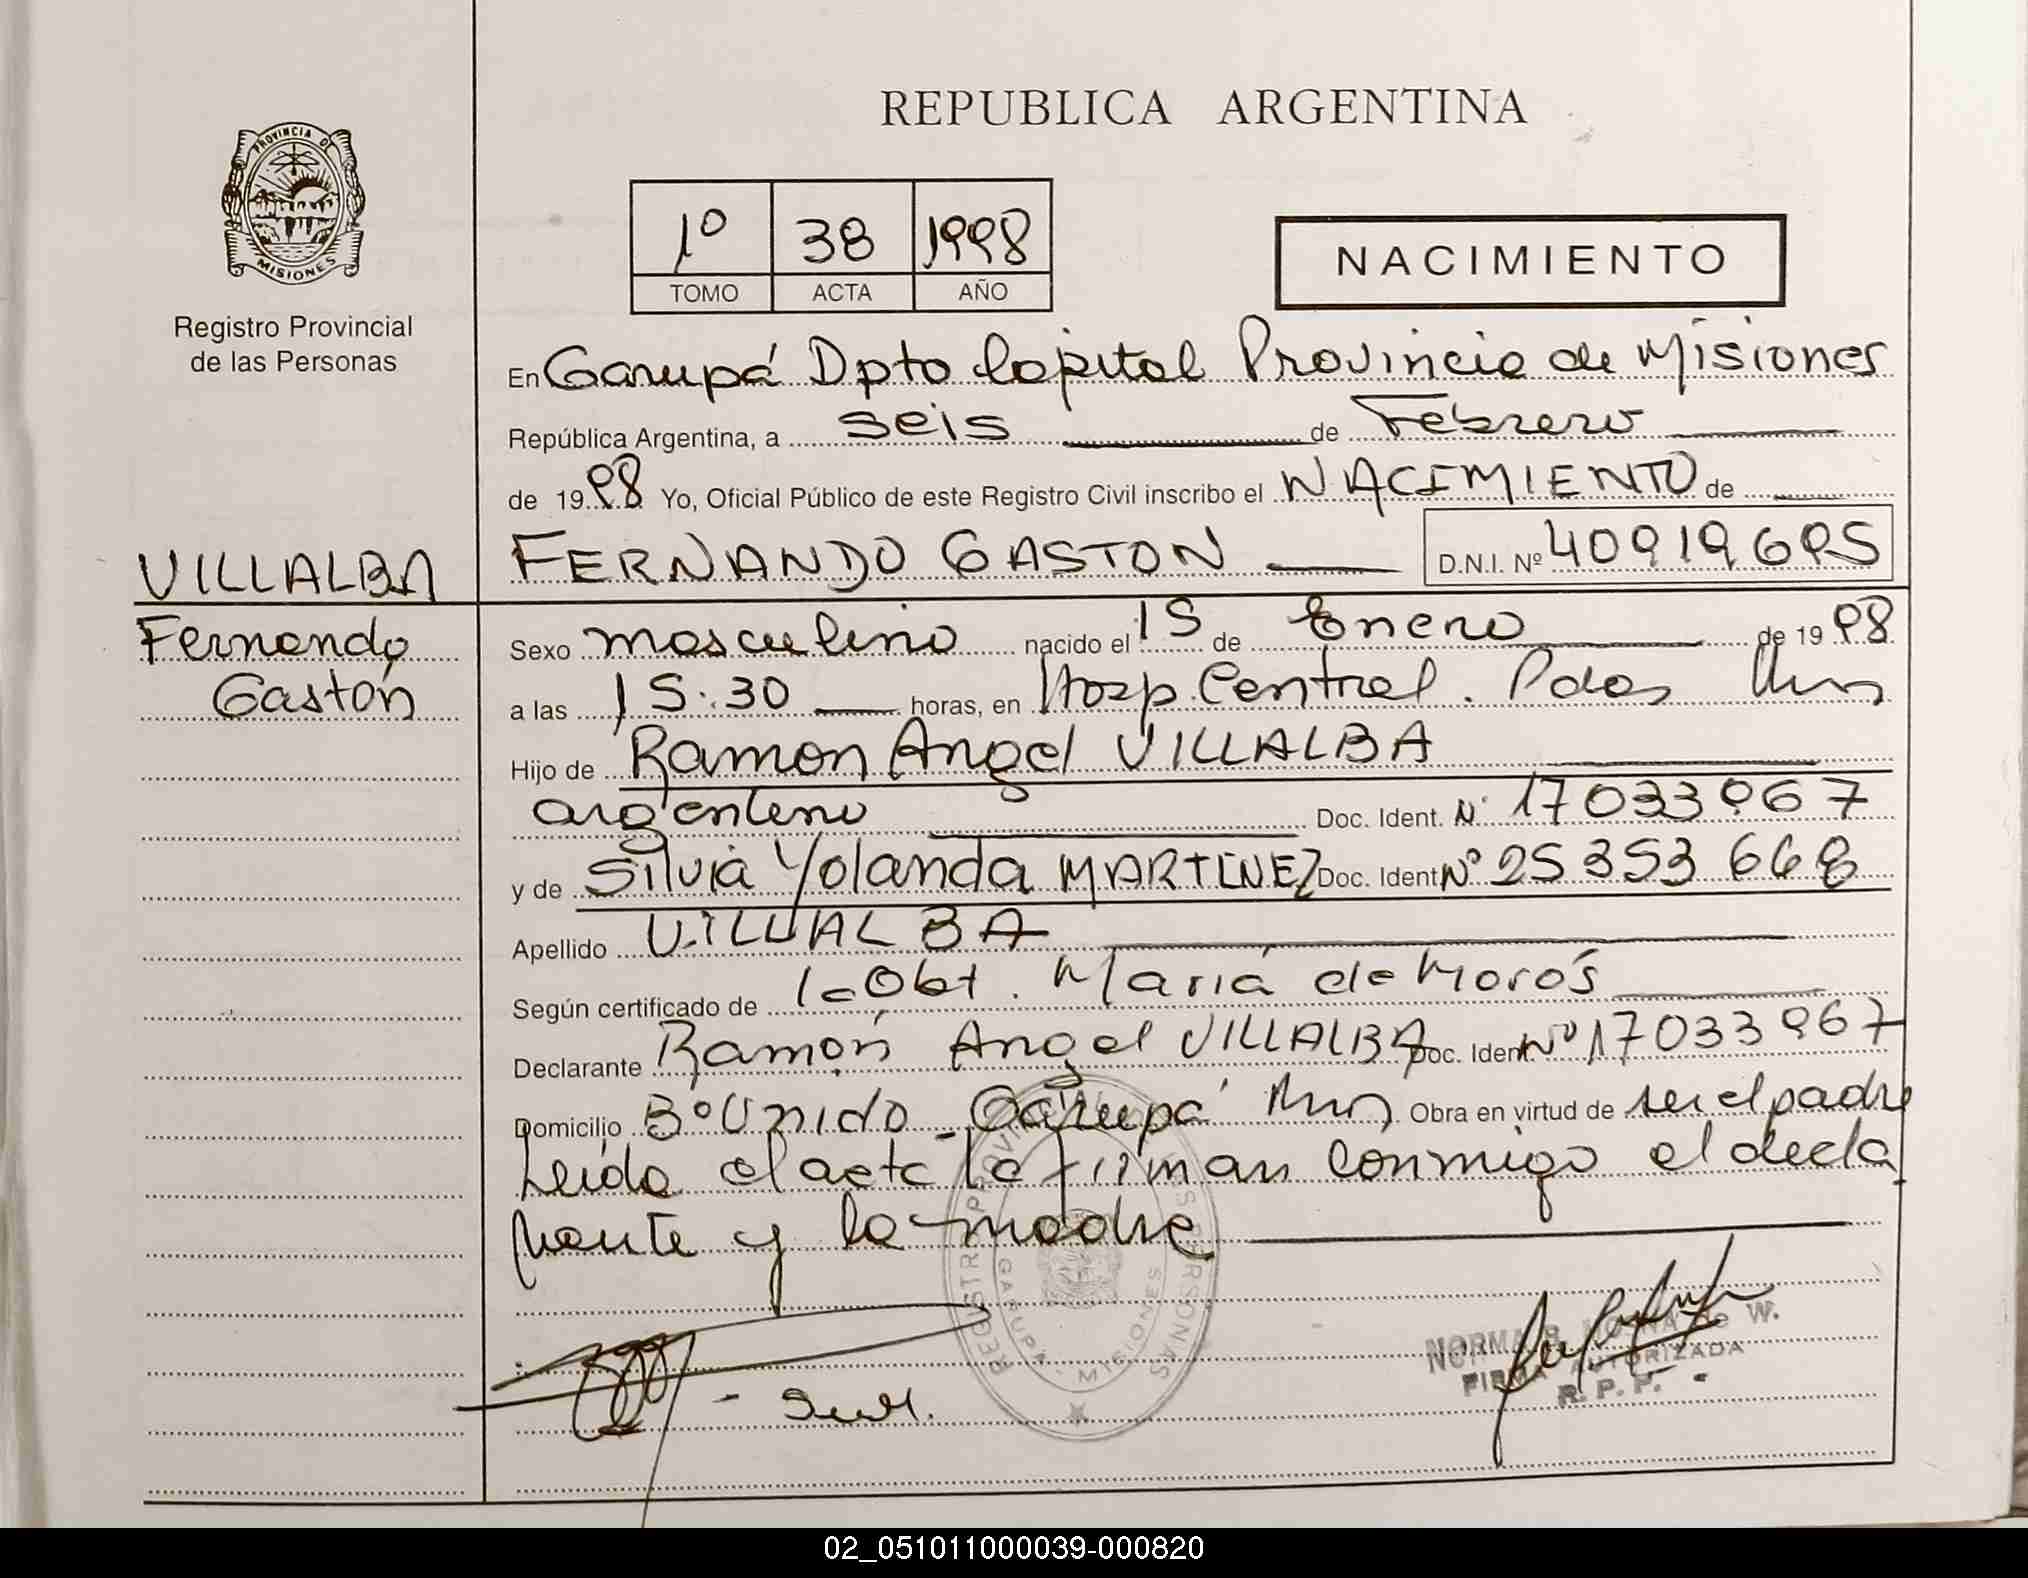 REPUBLICA ARGENTINA
PROVINCIA DE
MISIONES
Registro Provincial
de las Personas
1º 38 1998
TOMO ACTA AÑO
NACIMIENTO
En Garupá Dpto Capital Provincia de Misiones
República Argentina, a seis de Febrero
de 1998 Yo, Oficial Público de este Registro Civil inscribo el NACIMIENTO de
VILLALBA FERNANDO GASTON D.N.I. Nº 40919695
Fernando
Gastón
Sexo masculino nacido el 15 de Enero de 1998
a las 15:30 horas, en Hosp. Central. Pdas Mnes
Hijo de Ramon Angel VILLALBA
argentino Doc. Ident. Nº 17033967
y de Silvia Yolanda MARTINEZ Doc. Ident Nº 25353668
Apellido VILLALBA
Según certificado de Obt. María de Morós
Declarante Ramón Angel VILLALBA Doc. Ident Nº 17033967
Domicilio Bº Unido Garupá Mnes Obra en virtud de ser el padre
Leída el acta la firman conmigo el decla
rante y la madre
REGISTRO PROVINCIAL DE LAS PERSONAS
GARUPA - MISIONES
NORMA B. de W.
FIRMA AUTORIZADA
R. P. P.
02_051011000039-000820